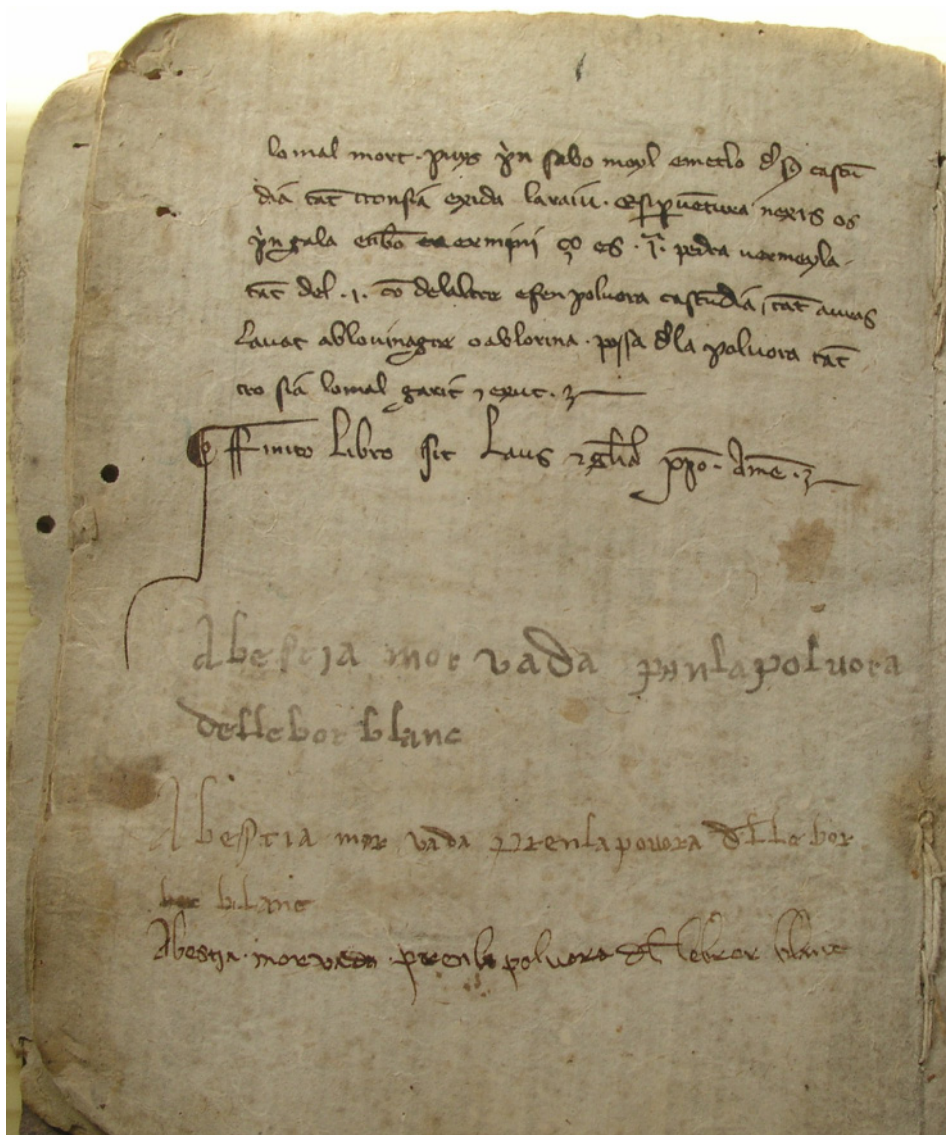 lo mal mort · puys pn sabo moyl e metlo d͛ ꝯ cascũ
dia tãt tro nsia exida la raiu · e si ꝑ uẽtura nexis os
pn gala enbõ e ermini ço es · i · pedra uermeyla ·
tãt del · i · cõ delaltre e fen poluora cascũ dia , tãt auras
lauat ab lo uinagre o ab lorina · possa d͛la poluora tãt
tro sia lo mal garit ⁊ exut ·
Finito libro sit laus ⁊ gl̃ia xp̃o · Amẽ ·
A bestia mor vada pren la poluora
dellebor blanc
A bestia mor vada pren la pouora d͛lle bor
bor blanc
A bestia · mor vada · pren la poluora d͛l lebror blanc